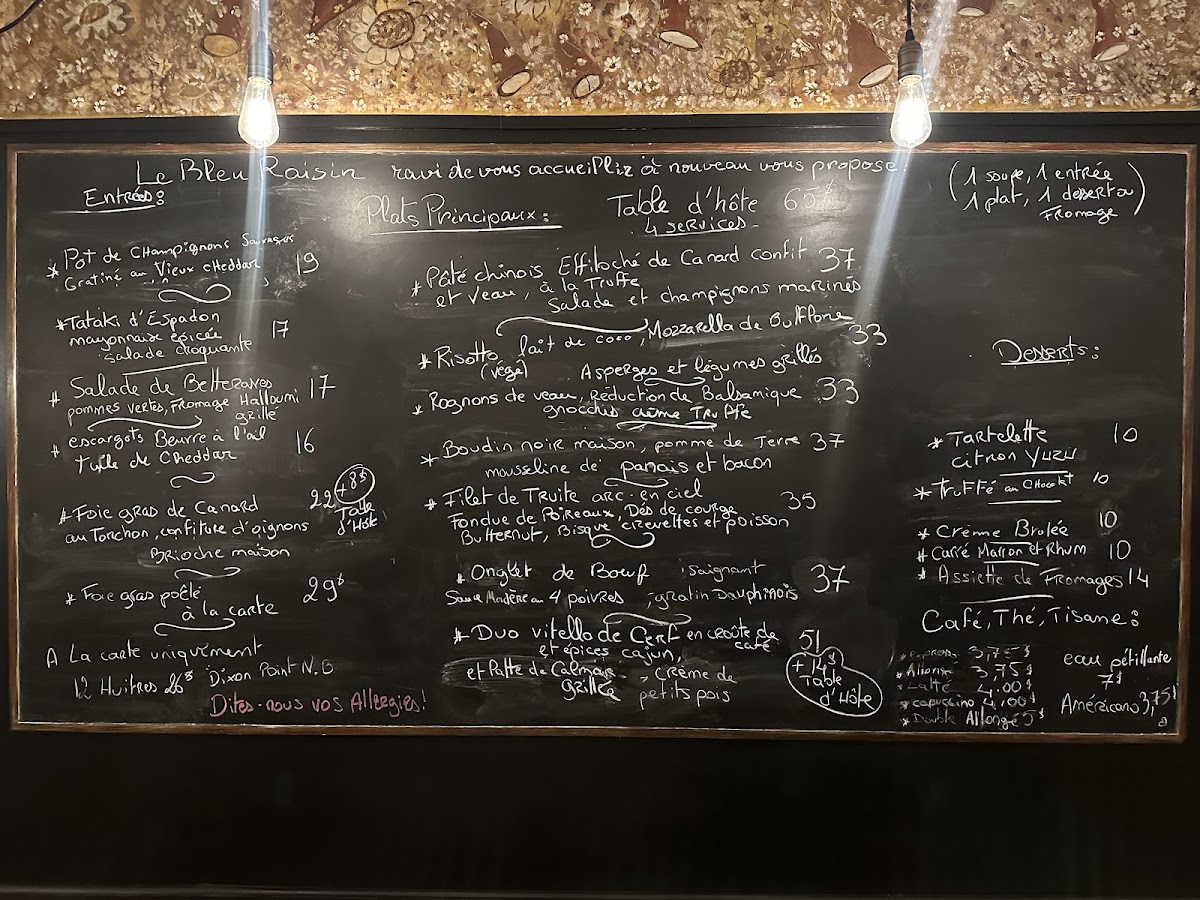 Le Bleu Raisin ravi de vous accueillir à nouveau vous propose:
Entrées:
* Pot de Champignons Sauvages
Gratiné au Vieux Cheddar 19
* Tataki d'Espadon
mayonnaise épicée 17
salade croquante
* Salade de Betteraves
pommes vertes, Fromage Halloumi 17
grillé
* escargots Beurre à l'ail 16
tuile de Cheddar
* Foie gras de Canard 22 +8$
au Torchon, confiture d'oignons Table d'Hôte
Brioche maison
* Foie gras poêlé 29$
à la carte
A La carte uniquement
12 Huitres 26$ Dixon Point N.B
Dites-nous vos Allergies!
Plats Principaux:
Table d'hôte 65$
4 services
(1 soupe, 1 entrée
1 plat, 1 dessert ou
Fromage)
* Pâté chinois Effiloché de Canard confit 37
et Veau, à la Truffe
Salade et champignons marinés
* Risotto lait de coco, Mozzarella de Bufflone 33
(végé) Asperges et légumes grillés
* Rognons de veau, Réduction de Balsamique 33
gnocchis crème Truffe
* Boudin noir maison, pomme de Terre 37
mousseline de panais et bacon
* Filet de Truite arc-en ciel 35
Fondue de Poireaux, Dés de courge
Butternut, Bisque crevettes et poisson
* Onglet de Bœuf saignant 37
Sauce Madère au 4 poivres, gratin Dauphinois
* Duo vitello de Cerf en croûte de café 51
et épices cajun, +14$
et Patte de Calmar grillée, Crème de Table
petits pois d'Hôte
Desserts:
* Tartelette 10
citron YUZU
* Truffé au Chocolat 10
* Crème Brulée 10
* Carré Marron et Rhum 10
* Assiette de Fromages 14
Café, Thé, Tisane:
* Express 3,75$
* Allongé 3,75$
* Latté 4,00$
* capuccino 4,00$
* Double Allongé 5$
eau pétillante
7$
Américano 3,75$